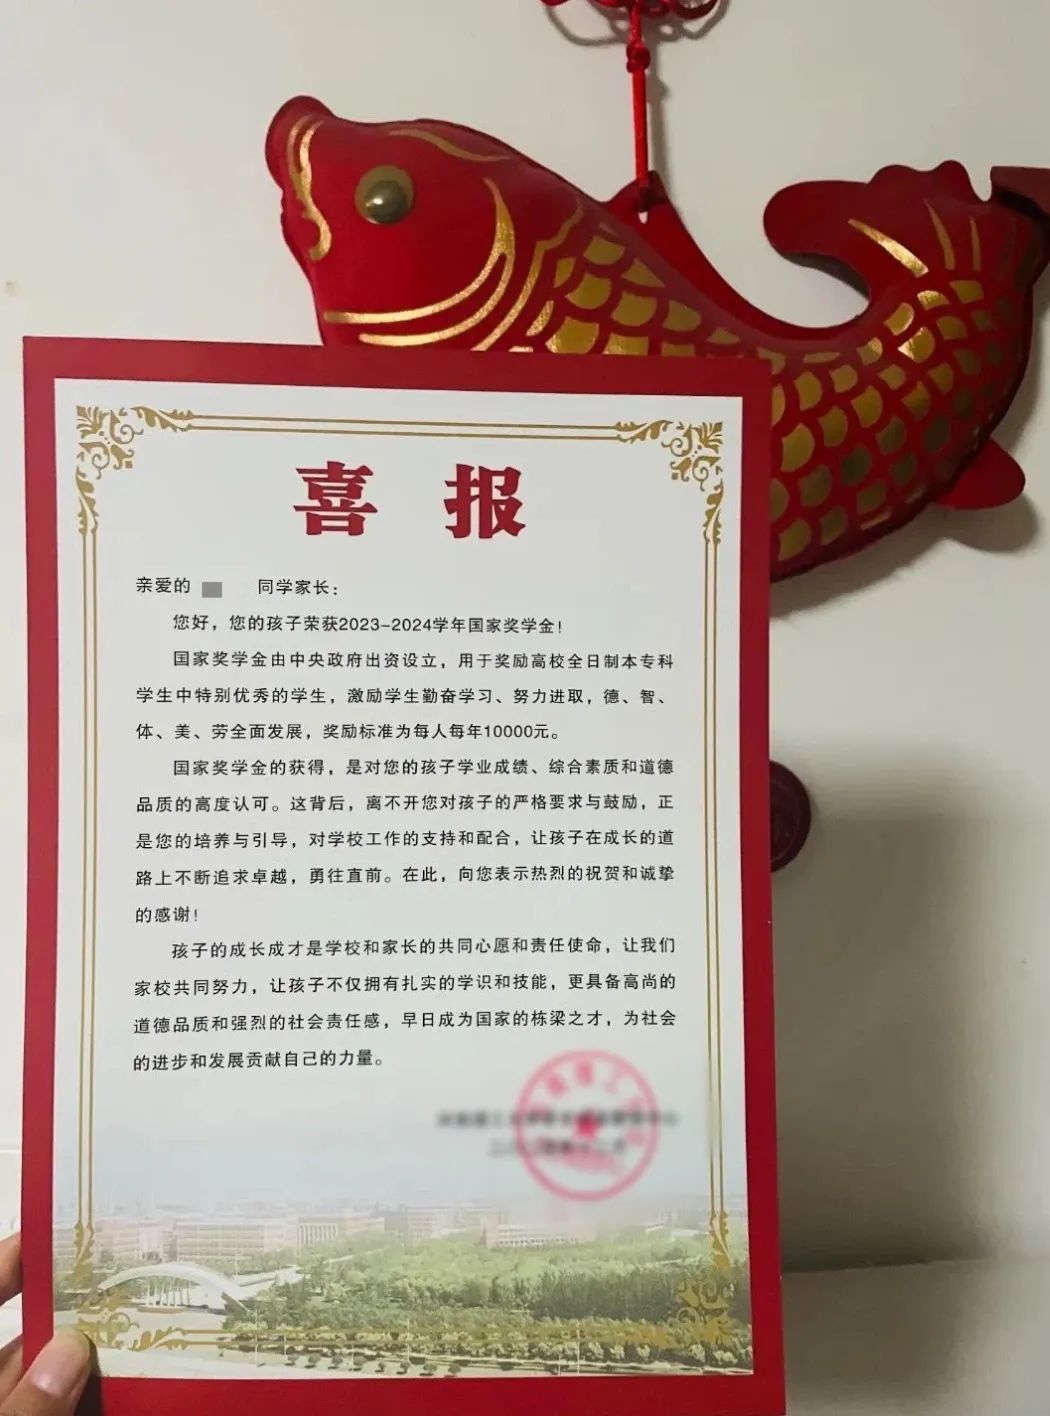 喜报
亲爱的 同学家长：
您好，您的孩子荣获2023-2024学年国家奖学金！
国家奖学金由中央政府出资设立，用于奖励高校全日制本专科
学生中特别优秀的学生，激励学生勤奋学习、努力进取，德、智、
体、美、劳全面发展，奖励标准为每人每年10000元。
国家奖学金的获得，是对您的孩子学业成绩、综合素质和道德
品质的高度认可。这背后，离不开您对孩子的严格要求与鼓励，正
是您的培养与引导，对学校工作的支持和配合，让孩子在成长的道
路上不断追求卓越，勇往直前。在此，向您表示热烈的祝贺和诚挚
的感谢！
孩子的成长成才是学校和家长的共同心愿和责任使命，让我们
家校共同努力，让孩子不仅拥有扎实的学识和技能，更具备高尚的
道德品质和强烈的社会责任感，早日成为国家的栋梁之才，为社会
的进步和发展贡献自己的力量。